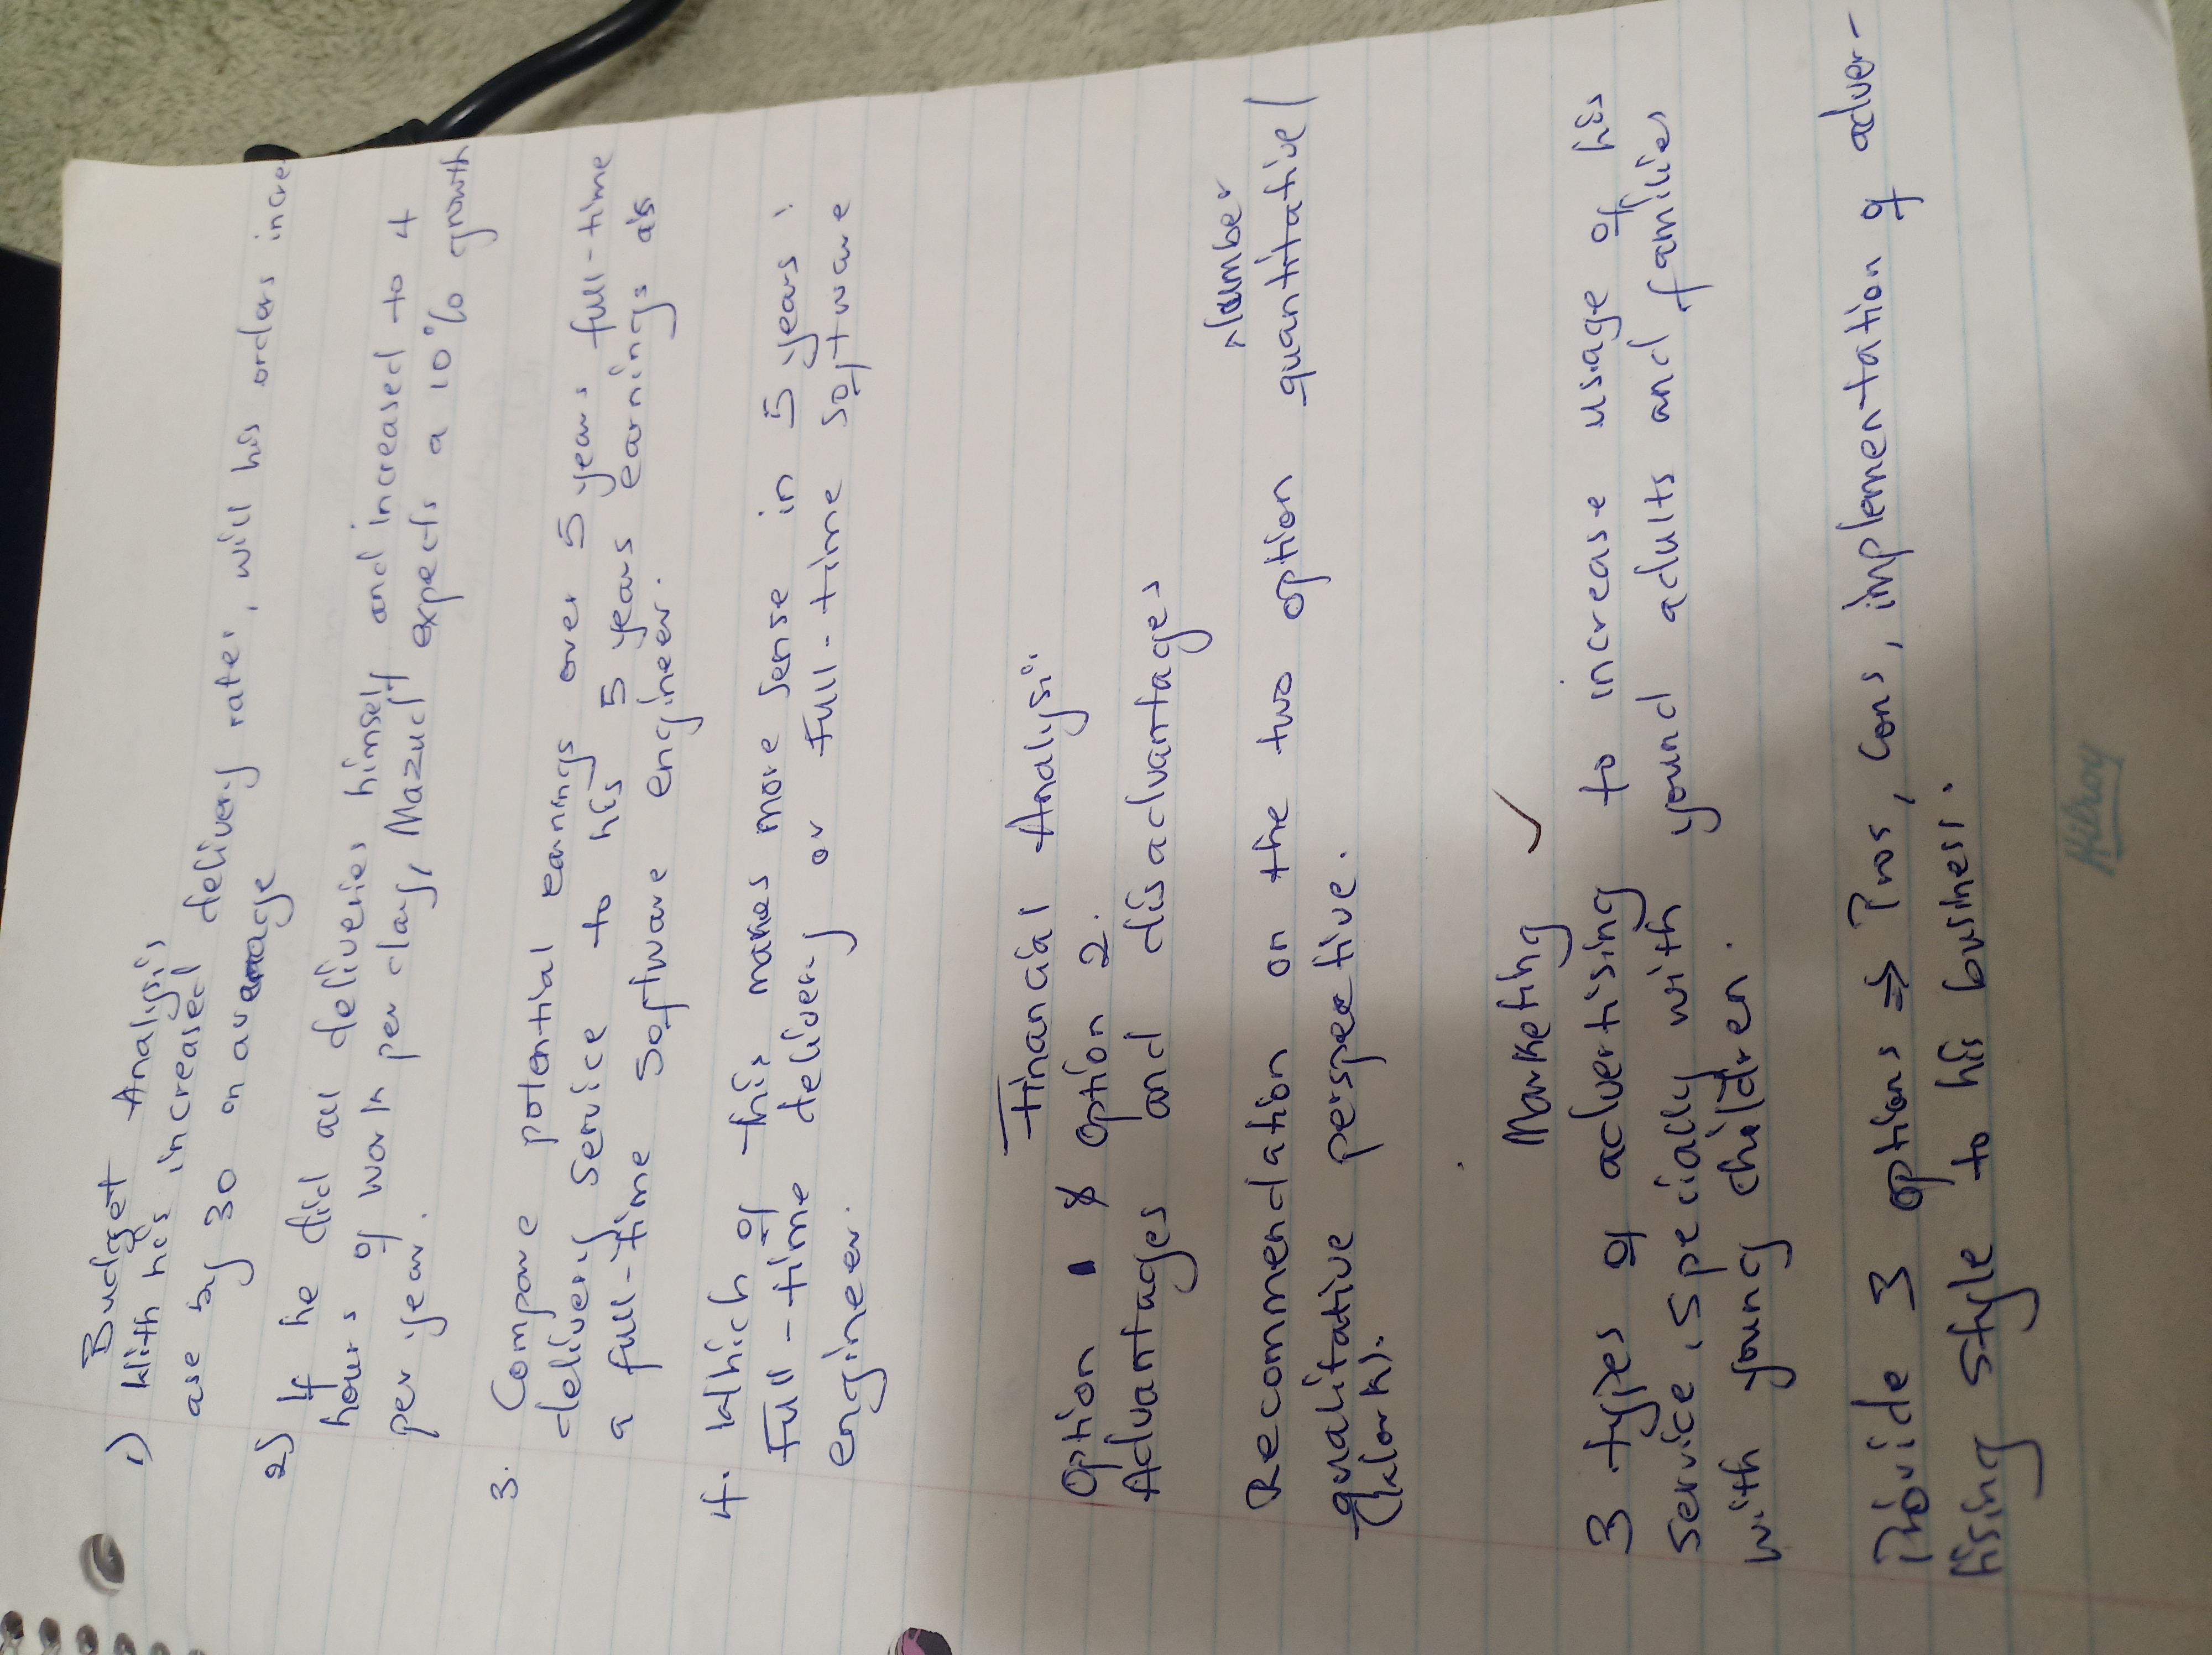 Budget Analysis
1) With his increased delivery rates, will his orders incre
ase by 30 on average
2) If he did all deliveries himself and increased to 4
hours of work per day, Mazudf expects a 10% growth
per year.
3. Compare potential earnings over 5 years full-time
delivery service to his 5 years earnings as
a full-time software engineer.
4. Which of this makes more sense in 5 years:
Full-time delivery or full-time software
engineer.
Financial Analysis
Option 1 & Option 2.
Advantages and disadvantages
Number
Recommendation on the two option quantitative /
qualitative perspective.
(Work).
Marketing ✓
3 types of advertising to increase usage of his
service, specially with yound adults and families
with young children.
Provide 3 options => Pros, cons, implementation of adver-
tising style to his business.
Hilroy